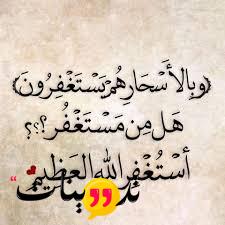 ﴿وَبِالأَسْحَارِ هُمْ يَسْتَغْفِرُونَ﴾
هَل مِن مُسْتَغْفِر؟؟؟
أستُغْفِرُ الله العَظِيم